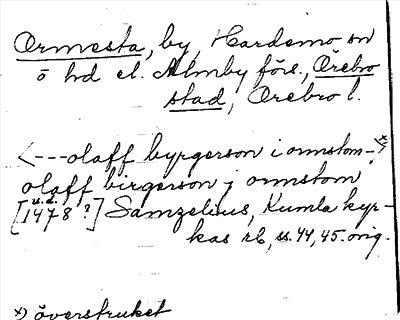 Ormesta, by, Hardemo sn
ö hd el. Almby förs., Örebro
stad, Örebro l.
<---olaff byrgerson i ormstom-,>x)
olaff birgerson j ormstom
[u.d. 1478?] Samzelius, Kumla kyr-
kas rb, ss. 44, 45. orig.
x) överstruket